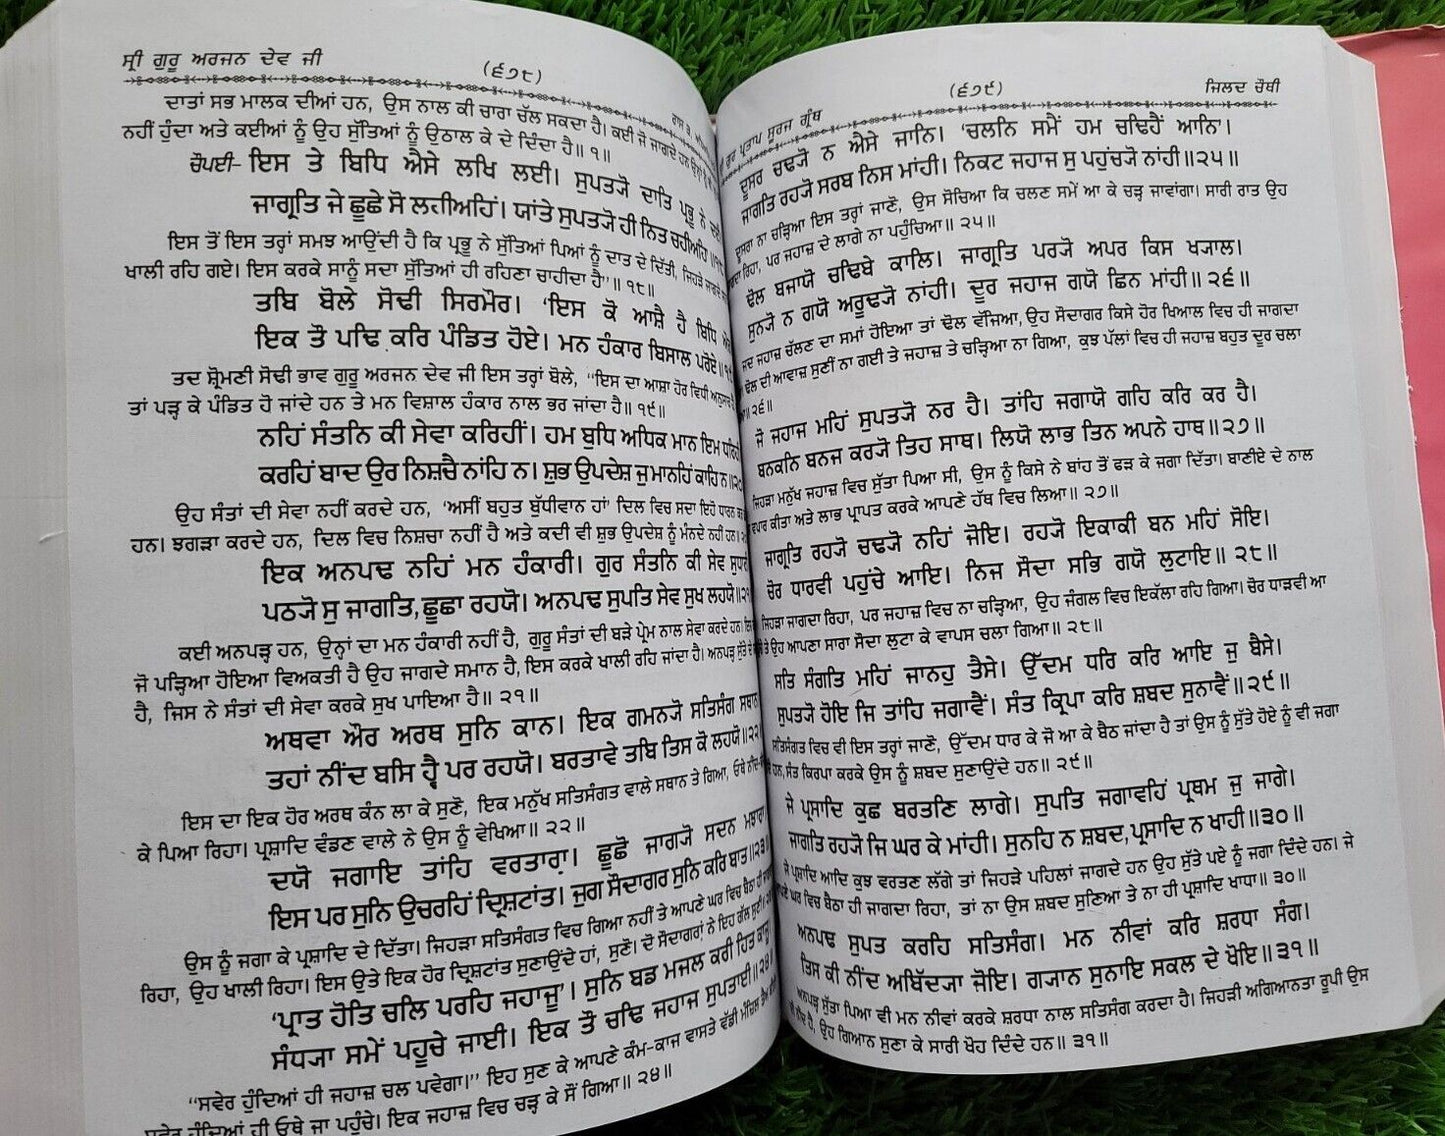 ਸ੍ਰੀ ਗੁਰੂ ਅਰਜਨ ਦੇਵ ਜੀ
(੬੭੮)
ਦਾਤਾਂ ਸਭ ਮਾਲਕ ਦੀਆਂ ਹਨ, ਉਸ ਨਾਲ ਕੀ ਚਾਰਾ ਚੱਲ ਸਕਦਾ ਹੈ। ਕਈ ਜੋ ਜਾਗਦੇ ਹਨ
ਨਹੀਂ ਹੁੰਦਾ ਅਤੇ ਕਈਆਂ ਨੂੰ ਉਹ ਸੁੱਤਿਆਂ ਨੂੰ ਉਠਾਲ ਕੇ ਦੇ ਦਿੰਦਾ ਹੈ॥ ੧॥
ਚੌਪਈ- ਇਸ ਤੇ ਬਿਧਿ ਐਸੇ ਲਖਿ ਲਈ। ਸੁਪਤ੍ਯੋ ਦਾਤਿ ਪ੍ਰਭੂ ਨੇ
ਜਾਗ੍ਰਤਿ ਜੇ ਛੂਛੇ ਸੋ ਲਹੀਅਹਿਂ। ਯਾਂਤੇ ਸੁਪਤ੍ਯੋ ਹੀ ਨਿਤ ਚਹੀਅਹਿ
ਇਸ ਤੋਂ ਇਸ ਤਰ੍ਹਾਂ ਸਮਝ ਆਉਂਦੀ ਹੈ ਕਿ ਪ੍ਰਭੂ ਨੇ ਸੁੱਤਿਆਂ ਪਿਆਂ ਨੂੰ ਦਾਤ ਦੇ ਦਿੱਤੀ, ਜਿਹੜੇ ਜਾਗਦੇ
ਖਾਲੀ ਰਹਿ ਗਏ। ਇਸ ਕਰਕੇ ਸਾਨੂੰ ਸਦਾ ਸੁੱਤਿਆਂ ਹੀ ਰਹਿਣਾ ਚਾਹੀਦਾ ਹੈ”॥ ੧੮॥
ਤਬਿ ਬੋਲੇ ਸੋਢੀ ਸਿਰਮੌਰ। ‘ਇਸ ਕੋ ਆਸ਼ੈ ਹੈ ਬਿਧਿ
ਇਕ ਤੌ ਪਢਿ ਕਰਿ ਪੰਡਿਤ ਹੋਏ। ਮਨ ਹੰਕਾਰ ਬਿਸਾਲ ਪਰੋਏ॥
ਤਦ ਸ਼੍ਰੋਮਣੀ ਸੋਢੀ ਭਾਵ ਗੁਰੂ ਅਰਜਨ ਦੇਵ ਜੀ ਇਸ ਤਰ੍ਹਾਂ ਬੋਲੇ, “ਇਸ ਦਾ ਆਸ਼ਾ ਹੋਰ ਵਿਧੀ ਅਨੁਸਾਰ
ਤਾਂ ਪੜ੍ਹ ਕੇ ਪੰਡਿਤ ਹੋ ਜਾਂਦੇ ਹਨ ਤੇ ਮਨ ਵਿਸ਼ਾਲ ਹੰਕਾਰ ਨਾਲ ਭਰ ਜਾਂਦਾ ਹੈ॥ ੧੯॥
ਨਹਿਂ ਸੰਤਨਿ ਕੀ ਸੇਵਾ ਕਰਿਹੀਂ। ਹਮ ਬੁਧਿ ਅਧਿਕ ਮਾਨ ਇਮ
ਕਰਹਿਂ ਬਾਦ ਉਰ ਨਿਸ਼ਚੈ ਨਾਂਹਿ ਨ। ਸ਼ੁਭ ਉਪਦੇਸ਼ ਜੁ ਮਾਨਹਿਂ ਕਾਹਿ ਨ॥੨੦
ਉਹ ਸੰਤਾਂ ਦੀ ਸੇਵਾ ਨਹੀਂ ਕਰਦੇ ਹਨ, ‘ਅਸੀਂ ਬਹੁਤ ਬੁੱਧੀਵਾਨ ਹਾਂ’ ਦਿਲ ਵਿਚ ਸਦਾ ਇਹੋ ਧਾਰਨ
ਹਨ। ਝਗੜਾ ਕਰਦੇ ਹਨ, ਦਿਲ ਵਿਚ ਨਿਸ਼ਚਾ ਨਹੀਂ ਹੈ ਅਤੇ ਕਦੀ ਵੀ ਸ਼ੁਭ ਉਪਦੇਸ਼ ਨੂੰ ਮੰਨਦੇ ਨਹੀਂ ਹਨ।
ਇਕ ਅਨਪਢ ਨਹਿਂ ਮਨ ਹੰਕਾਰੀ। ਗੁਰ ਸੰਤਨਿ ਕੀ ਸੇਵ ਸੁਧਾਰੀ
ਪਠ੍ਯੋ ਸੁ ਜਾਗਤਿ, ਛੂਛਾ ਰਹਯੋ। ਅਨਪਢ ਸੁਪਤਿ ਸੇਵ ਸੁਖ ਲਹਯੋ॥੨੧
ਕਈ ਅਨਪੜ੍ਹ ਹਨ, ਉਨ੍ਹਾਂ ਦਾ ਮਨ ਹੰਕਾਰੀ ਨਹੀਂ ਹੈ, ਗੁਰੂ ਸੰਤਾਂ ਦੀ ਬੜੇ ਪ੍ਰੇਮ ਨਾਲ ਸੇਵਾ ਕਰਦੇ ਹਨ।
ਜੋ ਪੜ੍ਹਿਆ ਹੋਇਆ ਵਿਅਕਤੀ ਹੈ ਉਹ ਜਾਗਦੇ ਸਮਾਨ ਹੈ, ਇਸ ਕਰਕੇ ਖਾਲੀ ਰਹਿ ਜਾਂਦਾ ਹੈ। ਅਨਪੜ੍ਹ ਸੁੱਤੇ ਦੇ
ਹੈ, ਜਿਸ ਨੇ ਸੰਤਾਂ ਦੀ ਸੇਵਾ ਕਰਕੇ ਸੁਖ ਪਾਇਆ ਹੈ॥ ੨੧॥
ਅਥਵਾ ਔਰ ਅਰਥ ਸੁਨਿ ਕਾਨ। ਇਕ ਗਮਨ੍ਯੋ ਸਤਿਸੰਗ ਸਥਾਨ
ਤਹਾਂ ਨੀਂਦ ਬਸਿ ਹ੍ਵੈ ਪਰ ਰਹਯੋ। ਬਰਤਾਵੇ ਤਬਿ ਤਿਸ ਕੋ ਲਹਯੋ॥੨੨
ਇਸ ਦਾ ਇਕ ਹੋਰ ਅਰਥ ਕੰਨ ਲਾ ਕੇ ਸੁਣੋ, ਇਕ ਮਨੁੱਖ ਸਤਿਸੰਗਤ ਵਾਲੇ ਸਥਾਨ ਤੇ ਗਿਆ, ਓਥੇ ਨੀਂਦ
ਕੇ ਪਿਆ ਰਿਹਾ। ਪ੍ਰਸ਼ਾਦਿ ਵੰਡਣ ਵਾਲੇ ਨੇ ਉਸ ਨੂੰ ਵੇਖਿਆ॥ ੨੨॥
ਦਯੋ ਜਗਾਇ ਤਾਂਹਿ ਵਰਤਾਰਾ। ਛੂਛੋ ਜਾਗ੍ਯੋ ਸਦਨ ਮਝਾਰਾ
ਇਸ ਪਰ ਸੁਨਿ ਉਚਰਹਿਂ ਦ੍ਰਿਸ਼ਟਾਂਤ। ਜੁਗ ਸੌਦਾਗਰ ਸੁਨਿ ਕਰਿ ਬਾਤ॥੨੩॥
ਉਸ ਨੂੰ ਜਗਾ ਕੇ ਪ੍ਰਸ਼ਾਦਿ ਦੇ ਦਿੱਤਾ। ਜਿਹੜਾ ਸਤਿਸੰਗਤ ਵਿਚ ਗਿਆ ਨਹੀਂ ਤੇ ਆਪਣੇ ਘਰ ਵਿਚ ਬੈਠਾ ਹੀ
ਰਿਹਾ, ਉਹ ਖਾਲੀ ਰਿਹਾ। ਇਸ ਉਤੇ ਇਕ ਹੋਰ ਦ੍ਰਿਸ਼ਟਾਂਤ ਸੁਣਾਉਂਦੇ ਹਾਂ, ਸੁਣੋ। ਦੋ ਸੌਦਾਗਰਾਂ ਨੇ ਇਹ ਗੱਲ ਸੁਣੀ॥
‘ਪ੍ਰਾਤ ਹੋਤਿ ਚਲਿ ਪਰਹਿ ਜਹਾਜੂ’। ਸੁਨਿ ਬਡ ਮਜਲ ਕਰੀ ਹਿਤ ਕਾਜੂ।
ਸੰਧ੍ਯਾ ਸਮੇਂ ਪਹੂਚੇ ਜਾਈ। ਇਕ ਤੌ ਚਢਿ ਜਹਾਜ ਸੁਪਤਾਈ॥੨੪॥
“ਸਵੇਰ ਹੁੰਦਿਆਂ ਹੀ ਜਹਾਜ਼ ਚਲ ਪਵੇਗਾ।” ਇਹ ਸੁਣ ਕੇ ਆਪਣੇ ਕੰਮ-ਕਾਜ ਵਾਸਤੇ ਵੱਡੀ ਮੰਜ਼ਿਲ
ਹੁੰਦਿਆਂ ਹੀ ਓਥੇ ਜਾ ਪਹੁੰਚੇ। ਇਕ ਜਹਾਜ਼ ਵਿਚ ਚੜ੍ਹ ਕੇ ਸੌਂ ਗਿਆ॥ ੨੪॥
ਗੁਰ ਪ੍ਰਤਾਪ ਸੂਰਜ ਗ੍ਰੰਥ
(੬੭੯)
ਜਿਲਦ ਚੌਥੀ
ਦੂਸਰ ਚਢ੍ਯੋ ਨ ਐਸੇ ਜਾਨਿ। ‘ਚਲਨਿ ਸਮੈਂ ਹਮ ਚਢਿਹੈਂ ਆਨਿ’।
ਜਾਗਤਿ ਰਹ੍ਯੋ ਸਰਬ ਨਿਸ ਮਾਂਹੀ। ਨਿਕਟ ਜਹਾਜ ਸੁ ਪਹੁਂਚ੍ਯੋ ਨਾਂਹੀ॥੨੫॥
ਦੂਸਰਾ ਨਾ ਚੜ੍ਹਿਆ ਇਸ ਤਰ੍ਹਾਂ ਜਾਣੋ, ਉਸ ਸੋਚਿਆ ਕਿ ਚਲਣ ਸਮੇਂ ਆ ਕੇ ਚੜ੍ਹ ਜਾਵਾਂਗਾ। ਸਾਰੀ ਰਾਤ ਉਹ
ਰਿਹਾ, ਪਰ ਜਹਾਜ਼ ਦੇ ਲਾਗੇ ਨਾ ਪਹੁੰਚਿਆ॥ ੨੫॥
ਢੋਲ ਬਜਾਯੋ ਚਢਿਬੇ ਕਾਲਿ। ਜਾਗ੍ਰਤਿ ਪਰ੍ਯੋ ਅਪਰ ਕਿਸ ਖ੍ਯਾਲ।
ਸੁਨ੍ਯੋ ਨ ਗਯੋ ਅਰੂਢ੍ਯੋ ਨਾਂਹੀ। ਦੂਰ ਜਹਾਜ ਗਯੋ ਛਿਨ ਮਾਂਹੀ॥੨੬॥
ਜਦ ਜਹਾਜ਼ ਚੱਲਣ ਦਾ ਸਮਾਂ ਹੋਇਆ ਤਾਂ ਢੋਲ ਵੱਜਿਆ, ਉਹ ਸੌਦਾਗਰ ਕਿਸੇ ਹੋਰ ਖਿਆਲ ਵਿਚ ਹੀ ਜਾਗਦਾ
ਢੋਲ ਦੀ ਆਵਾਜ਼ ਸੁਣੀਂ ਨਾ ਗਈ ਤੇ ਜਹਾਜ਼ ਤੇ ਚੜ੍ਹਿਆ ਨਾ ਗਿਆ, ਕੁਝ ਪੱਲਾਂ ਵਿਚ ਹੀ ਜਹਾਜ਼ ਬਹੁਤ ਦੂਰ ਚਲਾ
॥ ੨੬॥
ਜੋ ਜਹਾਜ ਮਹਿਂ ਸੁਪਤ੍ਯੋ ਨਰ ਹੈ। ਤਾਂਹਿ ਜਗਾਯੋ ਗਹਿ ਕਰਿ ਕਰ ਹੈ।
ਬਨਕਨਿ ਬਨਜ ਕਰ੍ਯੋ ਤਿਹ ਸਾਥ। ਲਿਯੋ ਲਾਭ ਤਿਨ ਅਪਨੇ ਹਾਥ॥੨੭॥
ਜਿਹੜਾ ਮਨੁੱਖ ਜਹਾਜ਼ ਵਿਚ ਸੁੱਤਾ ਪਿਆ ਸੀ, ਉਸ ਨੂੰ ਕਿਸੇ ਨੇ ਬਾਂਹ ਤੋਂ ਫੜ ਕੇ ਜਗਾ ਦਿੱਤਾ। ਬਾਣੀਏ ਦੇ ਨਾਲ
ਵਪਾਰ ਕੀਤਾ ਅਤੇ ਲਾਭ ਪ੍ਰਾਪਤ ਕਰਕੇ ਆਪਣੇ ਹੱਥ ਵਿਚ ਲਿਆ॥ ੨੭॥
ਜਾਗ੍ਰਤਿ ਰਹ੍ਯੋ ਚਢ੍ਯੋ ਨਹਿਂ ਜੋਇ। ਰਹ੍ਯੋ ਇਕਾਕੀ ਬਨ ਮਹਿਂ ਸੋਇ।
ਚੋਰ ਧਾਰਵੀ ਪਹੁਂਚੇ ਆਇ। ਨਿਜ ਸੌਦਾ ਸਭਿ ਗਯੋ ਲੁਟਾਇ॥੨੮॥
ਜਿਹੜਾ ਜਾਗਦਾ ਰਿਹਾ, ਪਰ ਜਹਾਜ਼ ਵਿਚ ਨਾ ਚੜ੍ਹਿਆ, ਉਹ ਜੰਗਲ ਵਿਚ ਇਕੱਲਾ ਰਹਿ ਗਿਆ। ਚੋਰ ਧਾੜਵੀ ਆ
ਤੇ ਉਹ ਆਪਣਾ ਸਾਰਾ ਸੌਦਾ ਲੁਟਾ ਕੇ ਵਾਪਸ ਚਲਾ ਗਿਆ॥ ੨੮॥
ਸਤਿ ਸੰਗਤਿ ਮਹਿਂ ਜਾਨਹੁ ਤੈਸੇ। ਉੱਦਮ ਧਰਿ ਕਰਿ ਆਇ ਜੁ ਬੈਸੇ।
ਸੁਪਤ੍ਯੋ ਹੋਇ ਜਿ ਤਾਂਹਿ ਜਗਾਵੈਂ। ਸੰਤ ਕ੍ਰਿਪਾ ਕਰਿ ਸ਼ਬਦ ਸੁਨਾਵੈਂ॥੨੯॥
ਸਤਿਸੰਗਤ ਵਿਚ ਵੀ ਇਸ ਤਰ੍ਹਾਂ ਜਾਣੋ, ਉੱਦਮ ਧਾਰ ਕੇ ਜੋ ਆ ਕੇ ਬੈਠ ਜਾਂਦਾ ਹੈ ਤਾਂ ਉਸ ਨੂੰ ਸੁੱਤੇ ਹੋਏ ਨੂੰ ਵੀ ਜਗਾ
ਹਨ, ਸੰਤ ਕਿਰਪਾ ਕਰਕੇ ਉਸ ਨੂੰ ਸ਼ਬਦ ਸੁਣਾਉਂਦੇ ਹਨ॥ ੨੯॥
ਜੇ ਪ੍ਰਸਾਦਿ ਕੁਛ ਬਰਤਣਿ ਲਾਗੇ। ਸੁਪਤਿ ਜਗਾਵਹਿਂ ਪ੍ਰਥਮ ਜੁ ਜਾਗੇ।
ਜਾਗਤਿ ਰਹ੍ਯੋ ਜਿ ਘਰ ਕੇ ਮਾਂਹੀ। ਸੁਨਹਿ ਨ ਸ਼ਬਦ, ਪ੍ਰਸਾਦਿ ਨ ਖਾਹੀ॥੩੦॥
ਜੇ ਪ੍ਰਸ਼ਾਦਿ ਆਦਿ ਕੁਝ ਵਰਤਣ ਲੱਗੇ ਤਾਂ ਜਿਹੜੇ ਪਹਿਲਾਂ ਜਾਗਦੇ ਹਨ ਉਹ ਸੁੱਤੇ ਪਏ ਨੂੰ ਜਗਾ ਦਿੰਦੇ ਹਨ। ਜੇ
ਘਰ ਵਿਚ ਬੈਠਾ ਹੀ ਜਾਗਦਾ ਰਿਹਾ, ਤਾਂ ਨਾ ਉਸ ਸ਼ਬਦ ਸੁਣਿਆ ਤੇ ਨਾ ਹੀ ਪ੍ਰਸ਼ਾਦਿ ਖਾਧਾ॥ ੩੦॥
ਅਨਪਢ ਸੁਪਤ ਕਰਹਿ ਸਤਿਸੰਗ। ਮਨ ਨੀਵਾਂ ਕਰਿ ਸ਼ਰਧਾ ਸੰਗ।
ਤਿਸ ਕੀ ਨੀਂਦ ਅਬਿੱਦ੍ਯਾ ਜੋਇ। ਗ੍ਯਾਨ ਸੁਨਾਇ ਸਕਲ ਦੇ ਖੋਇ॥੩੧॥
ਅਨਪੜ੍ਹ ਸੁੱਤਾ ਪਿਆ ਵੀ ਮਨ ਨੀਵਾਂ ਕਰਕੇ ਸ਼ਰਧਾ ਨਾਲ ਸਤਿਸੰਗ ਕਰਦਾ ਹੈ। ਜਿਹੜੀ ਅਗਿਆਨਤਾ ਰੂਪੀ ਉਸ
ਹੈ, ਉਹ ਗਿਆਨ ਸੁਣਾ ਕੇ ਸਾਰੀ ਖੋਹ ਦਿੰਦੇ ਹਨ॥ ੩੧॥